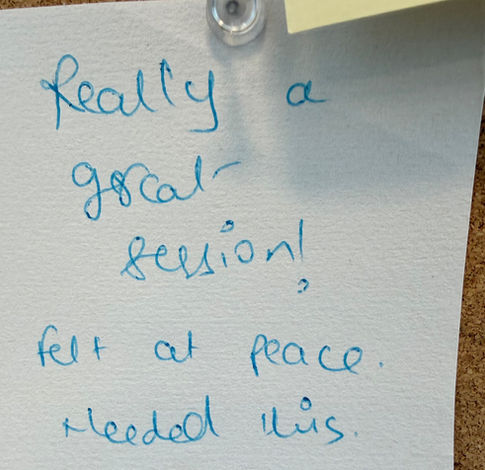 Really a
great
session!
felt at peace.
Needed this.